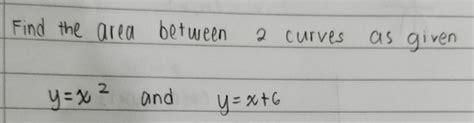 Find the area between 2 curves as given
y=x² and y=x+6